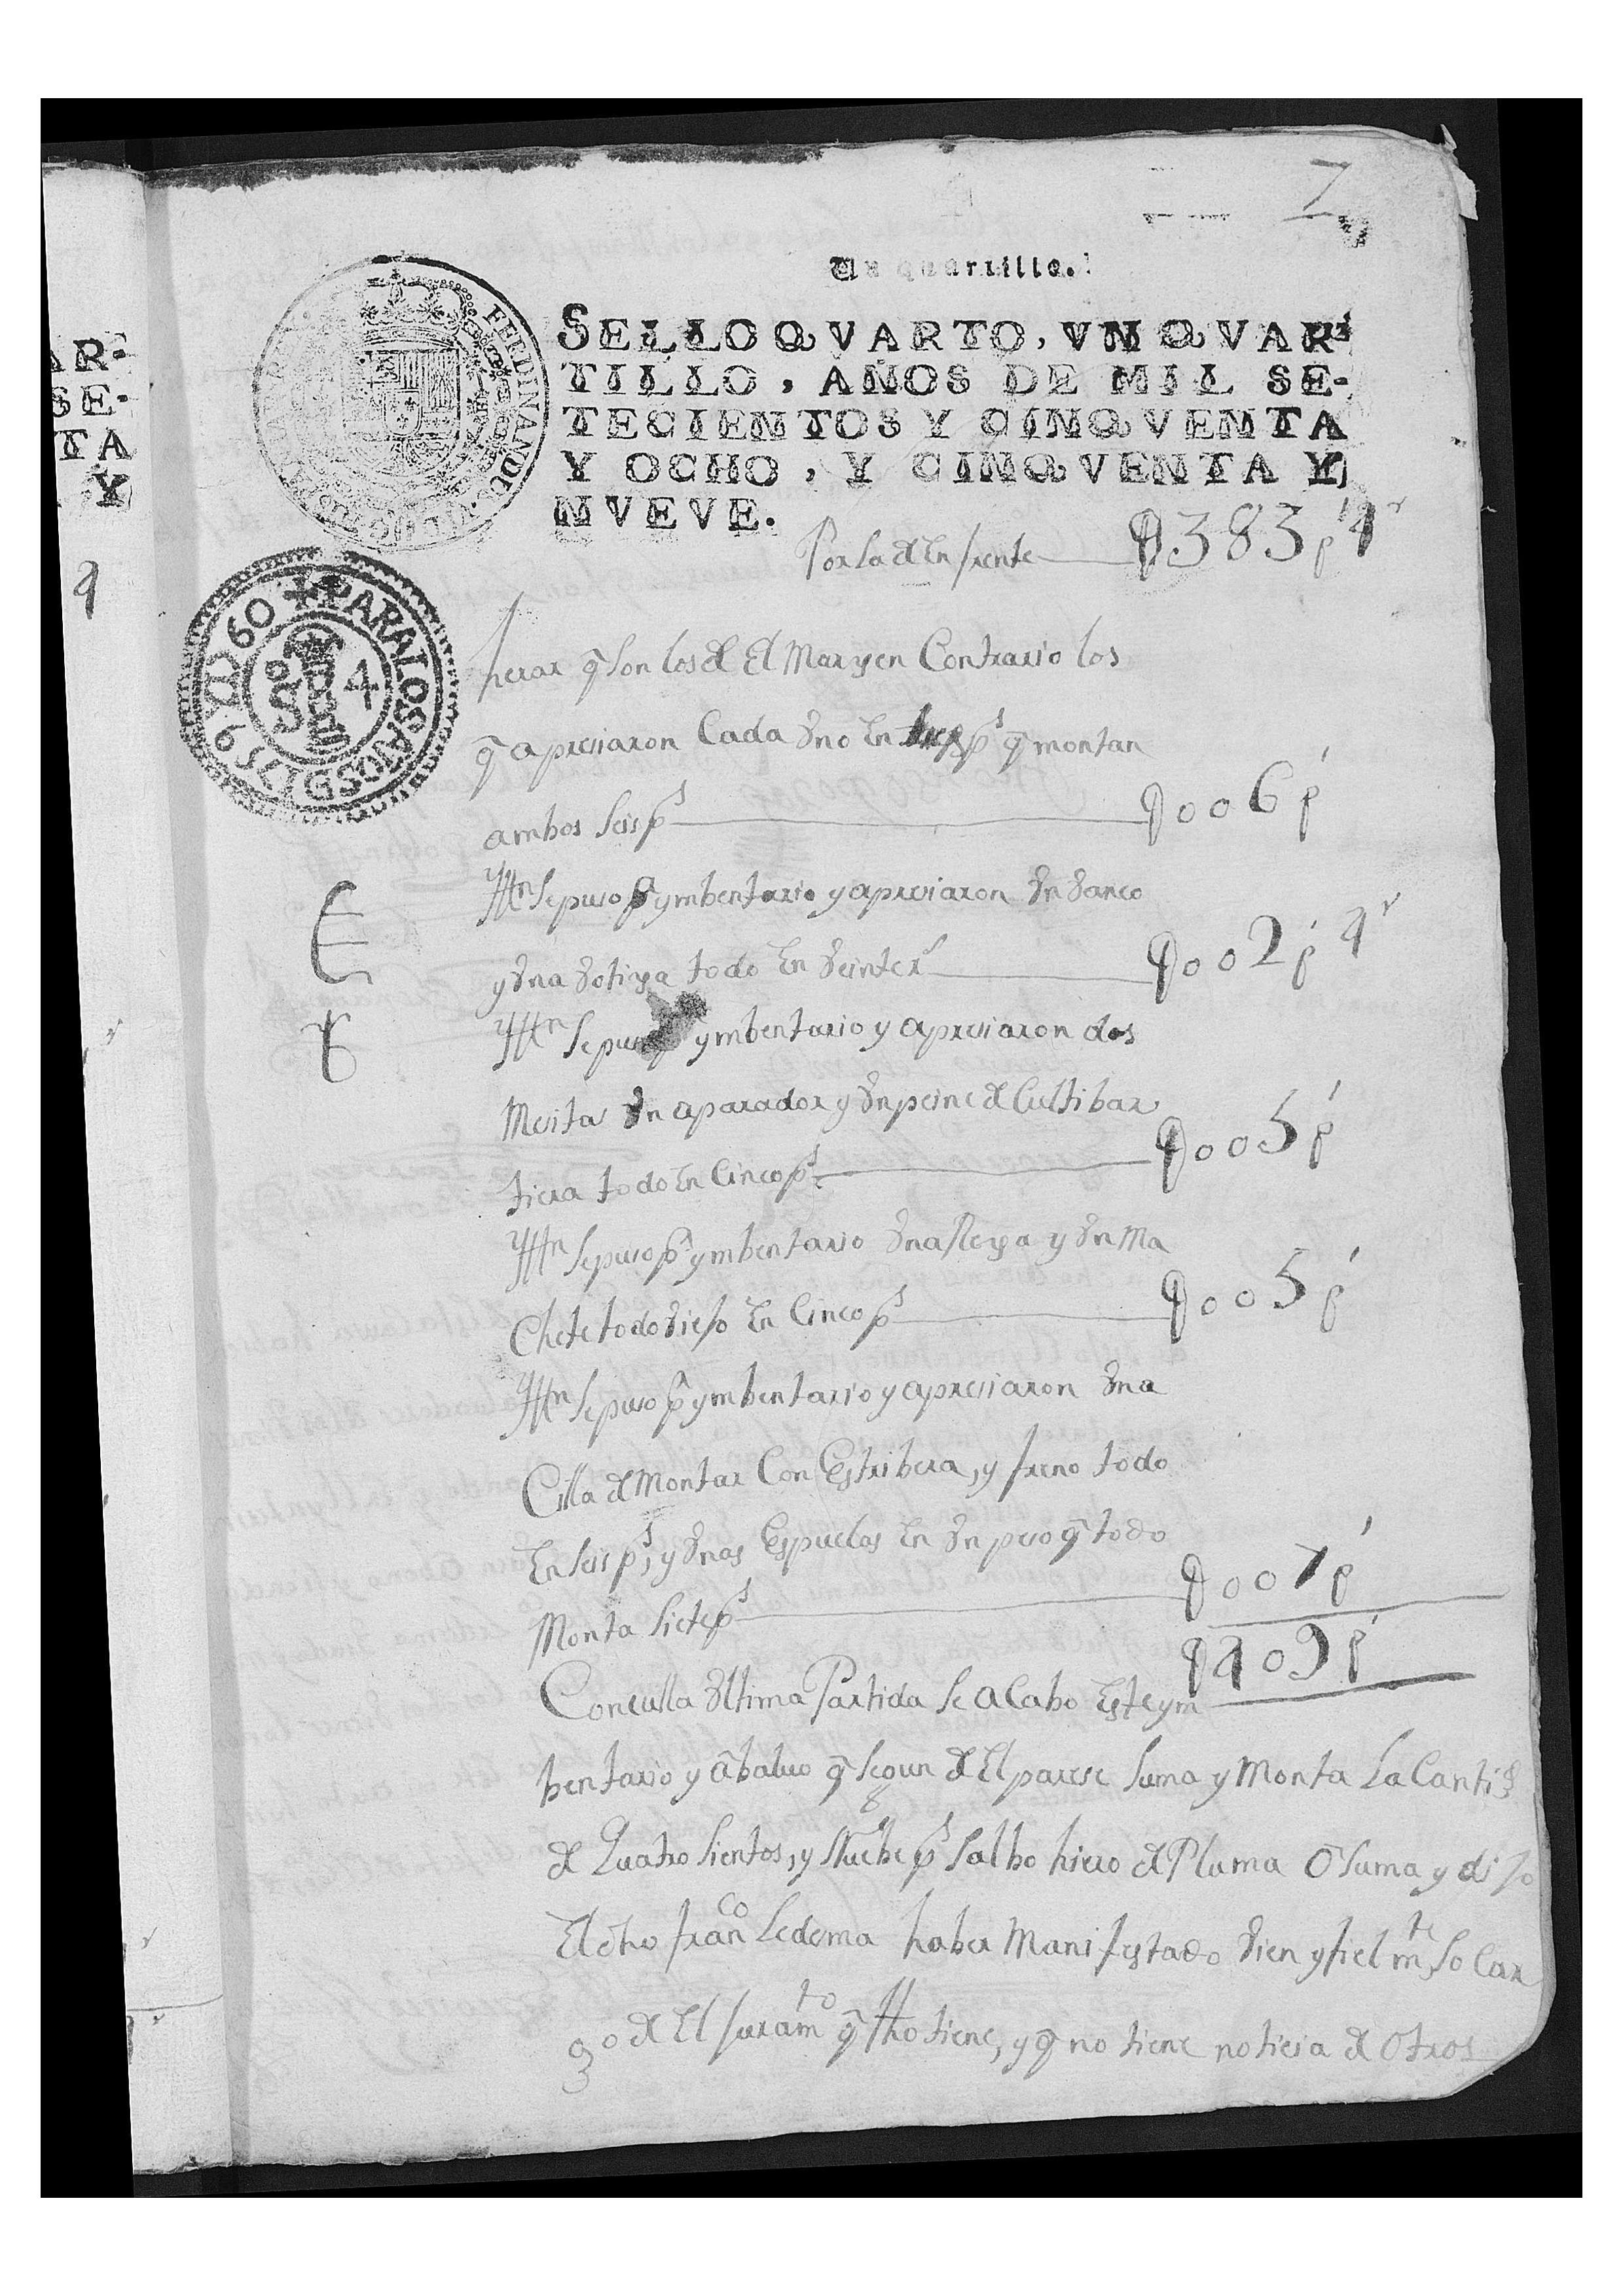 7
Un quartillo.
SELLO QVARTO, VN QVAR-
TILLO, AÑOS DE MIL SE-
TECIENTOS Y CINQVENTA
Y OCHO, Y CINQVENTA Y
NVEVE.
AR-
SE-
TA
Y
FERDINANDUS
PARA LOS AÑOS D 1759 Y 1760
S 4
Por la d En frente U383 p 4 r
herar q̃ son los d El Margen Contrario los
q̃ apresiaron Cada Vno En tres ps q̃ montan
ambos seis ps U006 p
Yttn Se puso p ymbentario y apresiaron Vn Vanco
y Vna Votija todo En Veinte rs U002 p 4 r
Yttn Se puso p ymbentario y apresiaron dos
Mesitas Vn aparador y Vn peine d Cultibar
tiera todo En Cinco ps U005 p
Yttn Se puso p ymbentario Vna Reja y Vn Ma
Chete todo Viejo En Cinco ps U005 p
Yttn Se puso p ymbentario y apresiaron Vna
Cilla d Montar Con Estribera, y freno todo
En seis ps, y Vnas Espuelas En Vn peso q̃ todo
Monta Siete ps U007 p
U409 p
Con culla Vltima Partida Se a Cabo Este ym
bentario y abaluo q̃ segun d El parese Suma y Monta La Cantid
d Quatro Sientos, y Nuebe ps Salbo hiero d Pluma O Suma y dijo
El dho franco Ledesma haber Manifestado Vien y fiel mte So Car
go d El Juramto q̃ fho tiene, y q̃ no tiene noticia d Otros